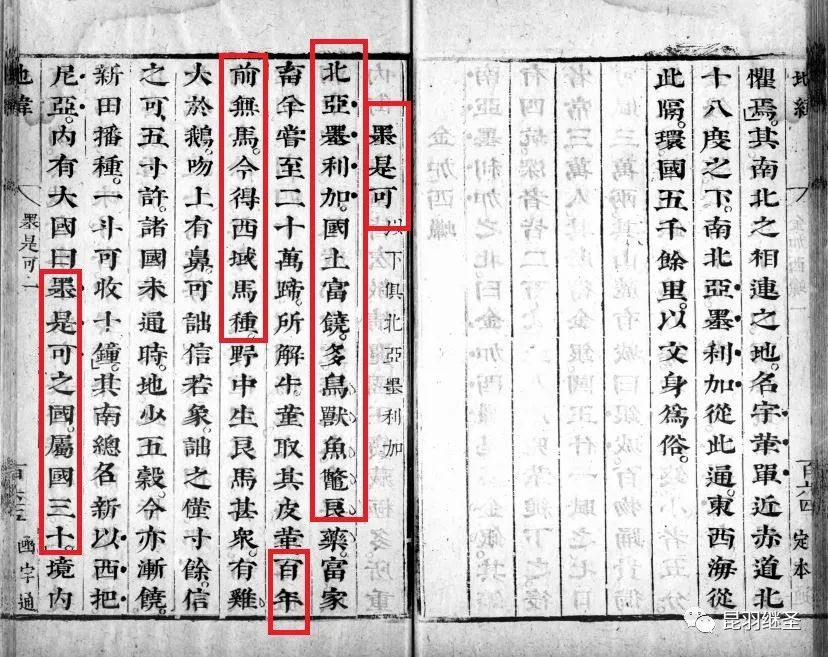 地緯
百六四
定本
懼焉。其南北之相連之地。名宇革單。近赤道北
十八度之下。南北亞墨利加從此通。東西海從
此隔。環國五千餘里。以文身爲俗。
墨是可 以下俱北亞墨利加
北亞墨利加。國土富饒。多鳥獸魚鼈。良藥富家
畜羊嘗至二十萬蹄。所解牛。董取其皮革。百年
前無馬。今得西域馬種。野中生良馬甚衆。有雞
大於鵝。吻上有鼻。可詘信若象。詘之僅寸餘。信
之可五寸許。諸國未通時。地少五穀。今亦漸饒。
新田播種。一斗可收十鐘。其南總名新以西把
尼亞。內有大國曰墨是可之國。屬國三十。境內
地緯
墨是可一
百六五
函宇通
昆羽继圣